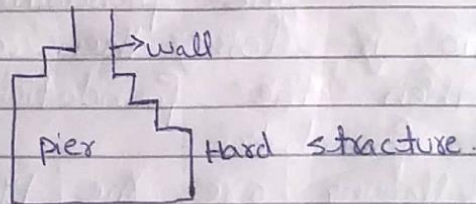 wall
pier Hard stracture.